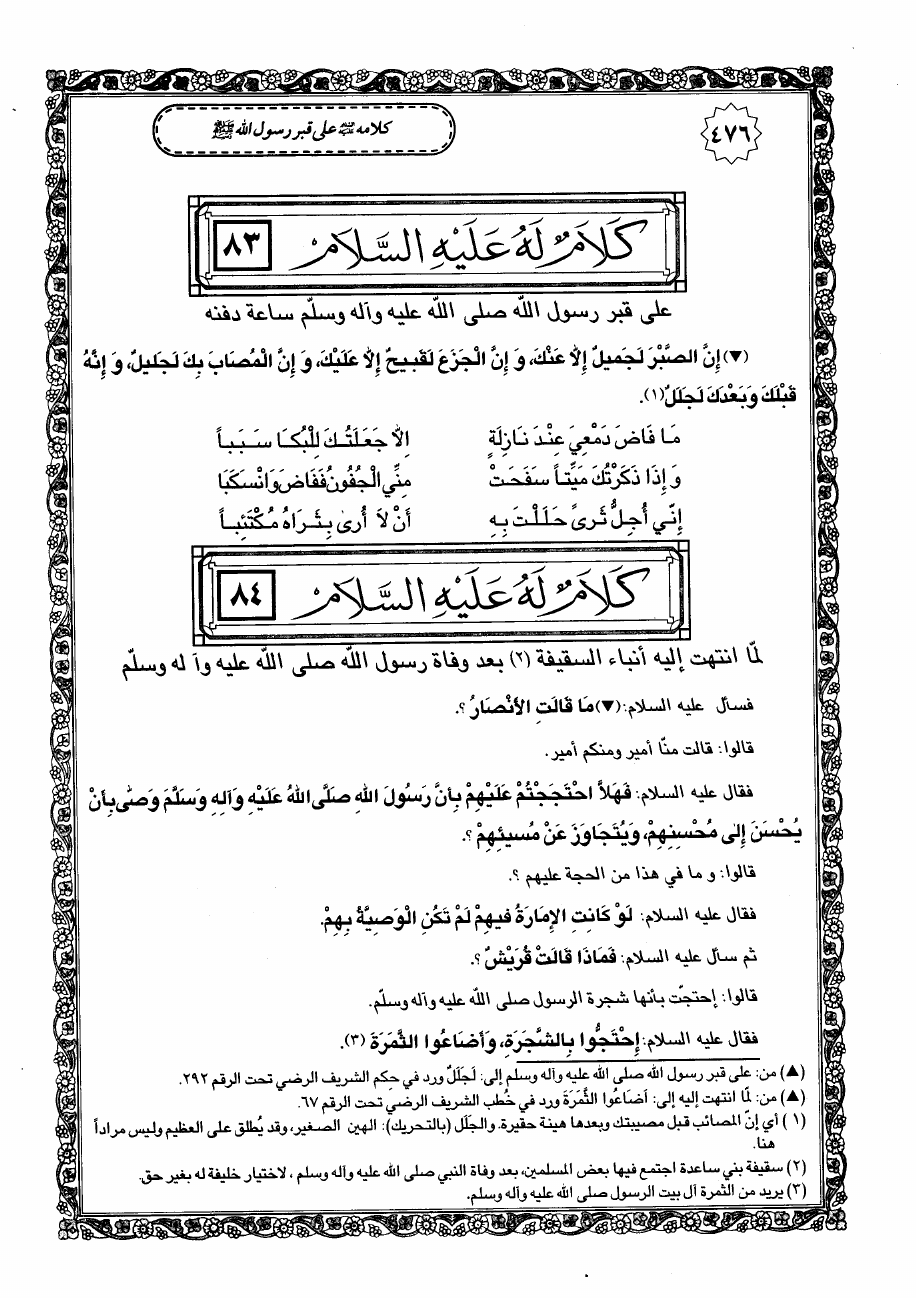 ٤٧٦
كلامه ﵇ على قبر رسول الله ﷺ
كَلَامٌ لَهُ عَلَيْهِ السَّلَامُ
٨٣
على قبر رسول اللّه صلى اللّه عليه وآله وسلّم ساعة دفنه
(▼) إِنَّ الصَّبْرَ لَجَميلٌ إِلاَّ عَنْكَ، وَ إِنَّ الْجَزَعَ لَقَبيحٌ إِلاَّ عَلَيْكَ، وَ إِنَّ الْمُصَابَ بِكَ لَجَليلٌ، وَ إِنَّهُ
قَبْلَكَ وَ بَعْدَكَ لَجَلَلٌ(١).
مَا فَاضَ دَمْعِيَ عِنْدَ نَازِلَةٍ إِلاَّ جَعَلَتُكَ لِلْبُكَا سَبَباً
وَ إِذَا ذَكَرْتُكَ مَيِّتاً سَفَحَتْ مِنِّي الْجُفُونُ فَفَاضَ وَانْسَكَبَا
إِنّي أُجِلُّ ثَرىً حَلَلْتَ بِهِ أَنْ لاَ أُرىٰ بِثَرَاهُ مُكْتَئِباً
كَلَامٌ لَهُ عَلَيْهِ السَّلَامُ
٨٤
لمّا انتهت إليه أنباء السقيفة (٢) بعد وفاة رسول اللّه صلى اللّه عليه وآ له وسلّم
فسأل عليه السلام:(▼)مَا قَالَتِ الأَنْصَارُ ؟.
قالوا: قالت منّا أمير ومنكم أمير.
فقال عليه السلام: فَهَلاَّ احْتَجَجْتُمْ عَلَيْهِمْ بِأَنَّ رَسُولَ اللهِ صَلَّى اللهُ عَلَيْهِ وَآلِهِ وَسَلَّمَ وَصّٰى بِأَنْ
يُحْسَنَ إِلىٰ مُحْسِنِهِمْ، وَيُتَجَاوَزَ عَنْ مُسيئِهِمْ ؟.
قالوا: و ما في هذا من الحجة عليهم ؟.
فقال عليه السلام: لَوْ كَانَتِ الإِمَارَةُ فيهِمْ لَمْ تَكُنِ الْوَصِيَّةُ بِهِمْ.
ثم سأل عليه السلام: فَمَاذَا قَالَتْ قُرَيْشٌ ؟.
قالوا: إحتجّت بأنها شجرة الرسول صلى اللّه عليه وآله وسلّم.
فقال عليه السلام: إِحْتَجُّوا بِالشَّجَرَةِ، وَأَضَاعُوا الثَّمَرَةَ (٣).
(▲) من: على قبر رسول اللّه صلى اللّه عليه وآله وسلم إلى: لَجَلَلٌ ورد في حِكم الشريف الرضي تحت الرقم ٢٩٢.
(▲) من: لمّا انتهت إليه إلى: أَضَاعُوا الثَّمَرَةَ ورد في خُطب الشريف الرضي تحت الرقم ٦٧.
(١ ) أي إنّ المصائب قبل مصيبتك وبعدها هينة حقيرة. والجَلَل (بالتحريك): الهين الصغير، وقد يُطلق على العظيم وليس مراداً
هنا.
(٢) سقيفة بني ساعدة اجتمع فيها بعض المسلمين، بعد وفاة النبي صلى اللّه عليه وآله وسلم ، لاختيار خليفة له بغير حق.
(٣) يريد من الثمرة آل بيت الرسول صلى اللّه عليه وآله وسلم.